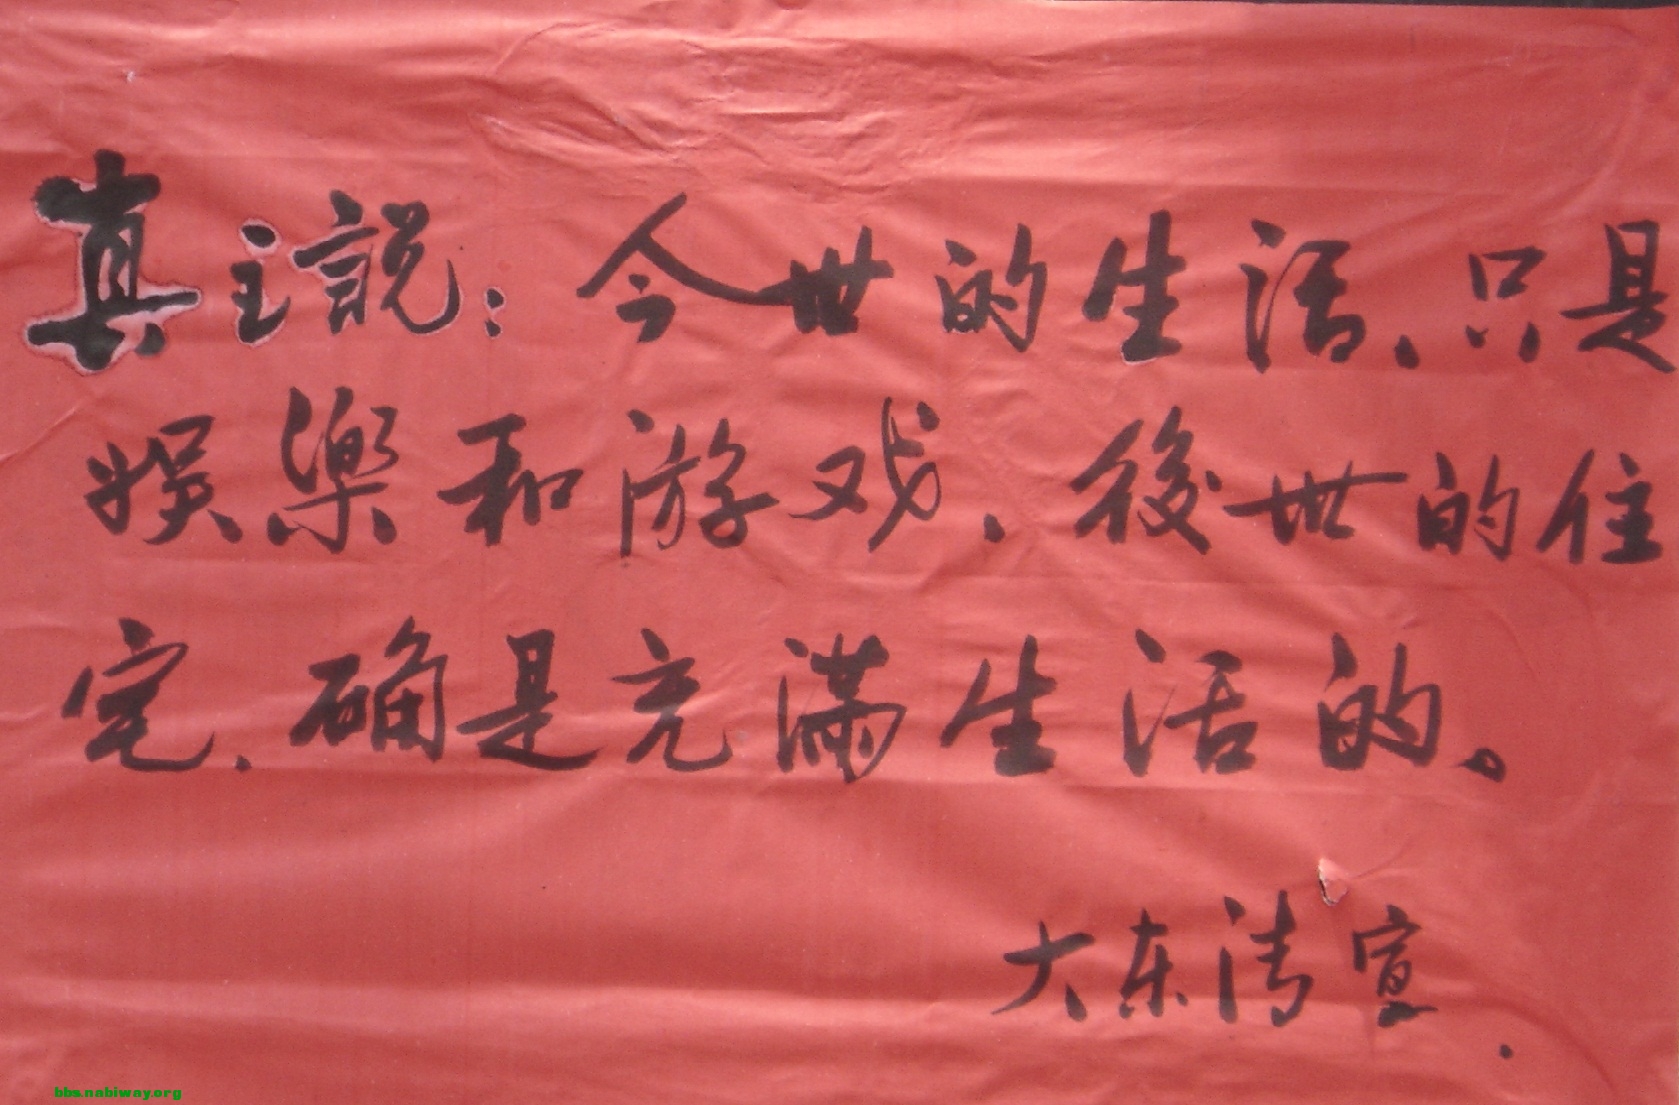 真主説：今世的生活、只是
娱樂和游戏、後世的住
宅、确是充满生活的。
大东清宣
bbs.nabiway.org